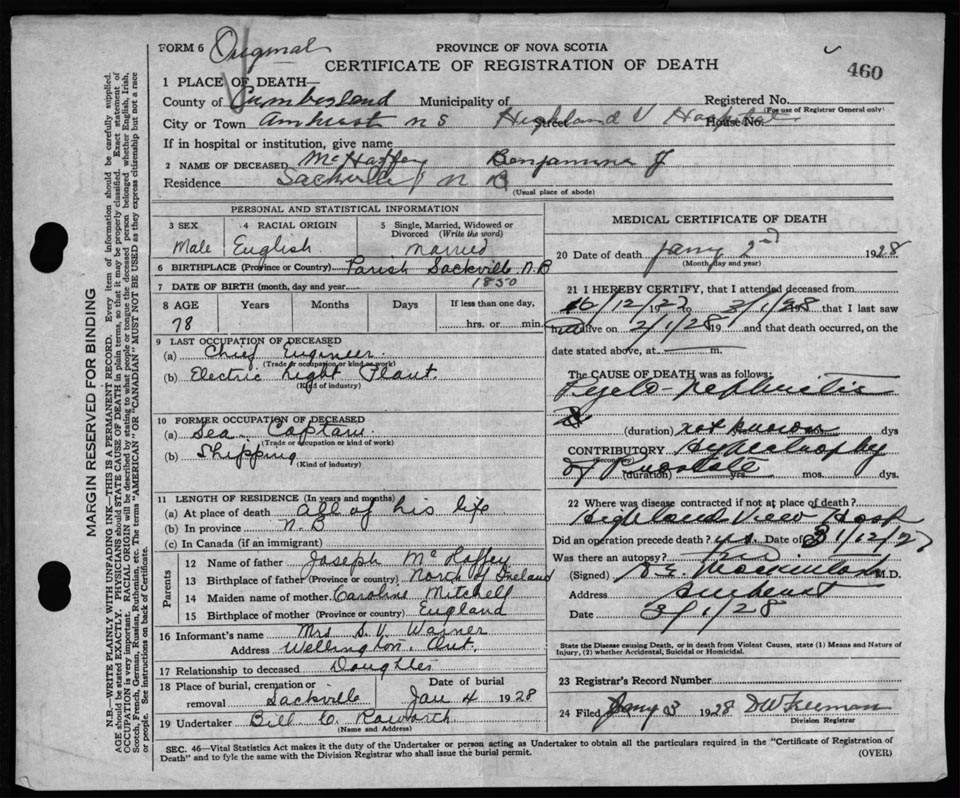 FORM 6 Original
PROVINCE OF NOVA SCOTIA
CERTIFICATE OF REGISTRATION OF DEATH
460
1 PLACE OF DEATH—
County of Cumberland Municipality of Registered No.
(For use of Registrar General only)
City or Town Amherst N S Street Highland V Hospital House No.
If in hospital or institution, give name
2 NAME OF DECEASED McHaffey Benjamin J
Residence Sackville N B
(Usual place of abode)
PERSONAL AND STATISTICAL INFORMATION
3 SEX Male
4 RACIAL ORIGIN English
5 Single, Married, Widowed or Divorced (Write the word) Married
6 BIRTHPLACE (Province or Country) Parish Sackville N.B
7 DATE OF BIRTH (month, day and year) 1850
8 AGE Years Months Days If less than one day,
78 hrs. or min.
9 LAST OCCUPATION OF DECEASED
(a) Chief Engineer
(Trade or occupation or kind of work)
(b) Electric Light Plant.
(Kind of industry)
10 FORMER OCCUPATION OF DECEASED
(a) Sea Captain
(Trade or occupation or kind of work)
(b) Shipping
(Kind of industry)
11 LENGTH OF RESIDENCE (In years and months)
(a) At place of death all of his life
(b) In province N.B
(c) In Canada (if an immigrant)
Parents
12 Name of father Joseph McHaffey
13 Birthplace of father (Province or country) North of Ireland
14 Maiden name of mother Caroline Mitchell
15 Birthplace of mother (Province or country) England
16 Informant's name Mrs S. V. Warner
Address Wellington. Ont.
17 Relationship to deceased Daughter
18 Place of burial, cremation or removal Sackville Date of burial Jan 4 1928
19 Undertaker Bill C. Raworth
(Name and Address)
MEDICAL CERTIFICATE OF DEATH
20 Date of death Jany 2nd 1928
(Month, day and year)
21 I HEREBY CERTIFY, that I attended deceased from
16/12/27 to 2/1/28 that I last saw
him alive on 2/1/28 19 and that death occurred, on the
date stated above, at m.
The CAUSE OF DEATH was as follows:
Pyelo-nephritis
(duration) not known dys
CONTRIBUTORY Hypertrophy
(Secondary)
of Prostate
(duration) yrs. mos. dys.
22 Where was disease contracted if not at place of death?
Highland View Hosp
Did an operation precede death? yes. Date of 31/12/27
Was there an autopsy? no
(Signed) M.D.
Address Amherst
Date 3/1/28
State the Disease causing Death, or in death from Violent Causes, state (1) Means and Nature of Injury, (2) whether Accidental, Suicidal or Homicidal.
23 Registrar's Record Number
24 Filed Jany 3 1928 DW Freeman
Division Registrar
SEC. 46—Vital Statistics Act makes it the duty of the Undertaker or person acting as Undertaker to obtain all the particulars required in the "Certificate of Registration of
Death" and to fyle the same with the Division Registrar who shall issue the burial permit. (OVER)
MARGIN RESERVED FOR BINDING
N.B.—WRITE PLAINLY WITH UNFADING INK—THIS IS A PERMANENT RECORD. Every item of information should be carefully supplied.
AGE should be stated EXACTLY. PHYSICIANS should STATE CAUSE OF DEATH in plain terms, so that it may be properly classified. Exact statement of
OCCUPATION is very important. RACIAL ORIGIN will be described by stating to what people or tongue the deceased person belonged whether English, Irish,
Scotch, French, German, Russian, Ruthenian, etc. The terms "AMERICAN" or "CANADIAN" MUST NOT BE USED as they express citizenship but not a race
or people. See instructions on back of Certificate.